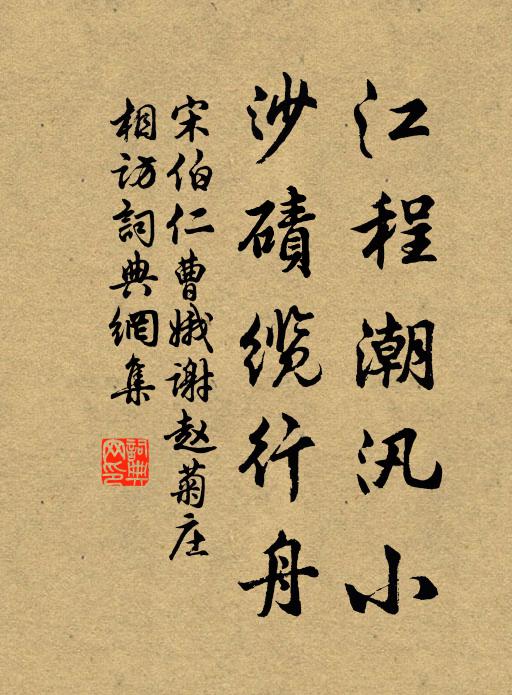 江程潮汛小
沙磧缆行舟
宋伯仁曹娥谢赵菊庄
相访詞典網集
詞典
网印